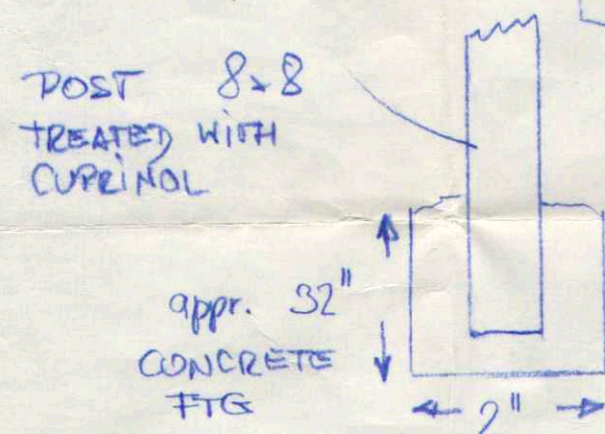 POST 8x8
TREATED WITH
CUPRINOL
appr. 32"
CONCRETE
FTG
2"